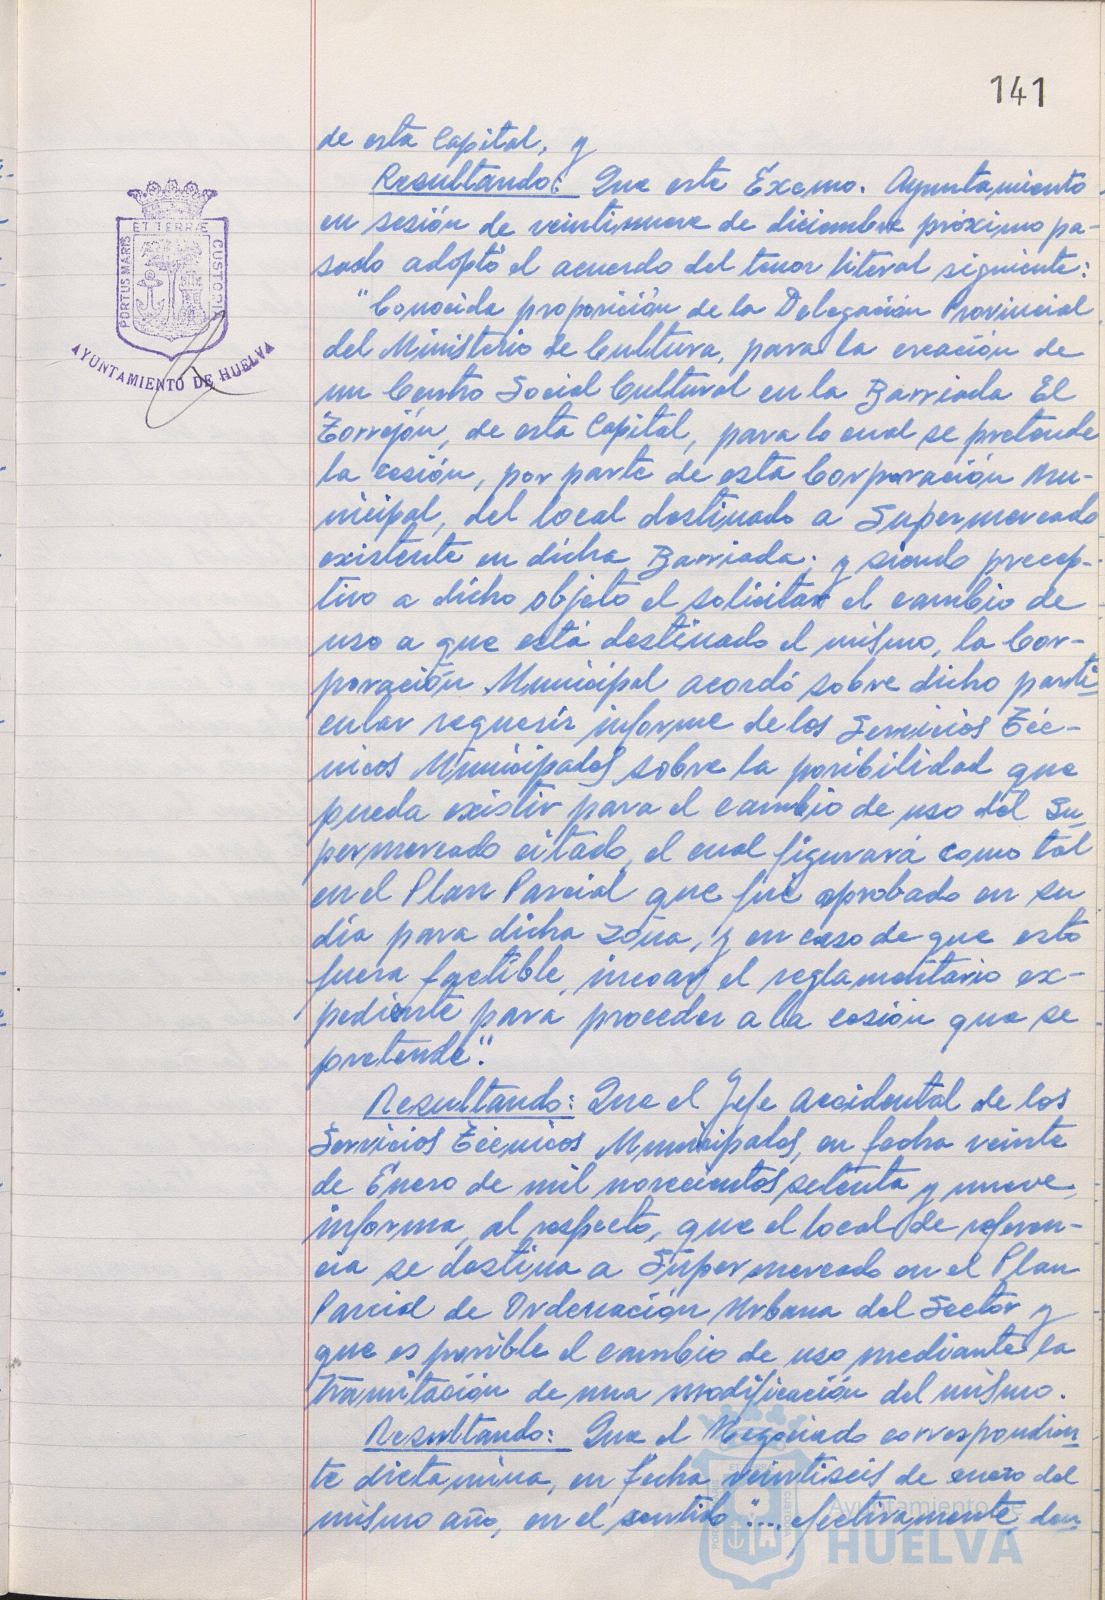 141
de esta Capital, y
Resultando: Que este Excmo. Ayuntamiento
en sesión de veintinueve de diciembre próximo pa-
sado adoptó el acuerdo del tenor literal siguiente:
"Conocida proposición de la Delegación Provincial
del Ministerio de Cultura, para la creación de
un Centro Social Cultural en la Barriada El
Torrejón, de esta Capital, para lo cual se pretende
la cesión, por parte de esta Corporación Mu-
nicipal, del local destinado a Supermercado
existente en dicha Barriada; y siendo precep-
tivo a dicho objeto el solicitar el cambio de
uso a que está destinado el mismo, la Cor-
poración Municipal acordó sobre dicho parti-
cular requerir informe de los Servicios Téc-
nicos Municipales sobre la posibilidad que
pueda existir para el cambio de uso del Su-
permercado citado, el cual figurará como tal
en el Plan Parcial que fué aprobado en su
día para dicha zona, y en caso de que esto
fuera factible, incoar el reglamentario ex-
pediente para proceder a la cesión que se
pretende".
Resultando: Que el Jefe Accidental de los
Servicios Técnicos Municipales, en fecha veinte
de Enero de mil novecientos setenta y nueve,
informa, al respecto, que el local de referen-
cia se destina a Supermercado en el Plan
Parcial de Ordenación Urbana del Sector y
que es posible el cambio de uso mediante la
tramitación de una modificación del mismo.
Resultando: Que el Negociado correspondien-
te dictamina, en fecha veintiseis de enero del
mismo año, en el sentido "... efectivamente, den-
PORTUS MARIS ET TERRÆ CUSTODIA
AYUNTAMIENTO DE HUELVA
Ayuntamiento de
HUELVA